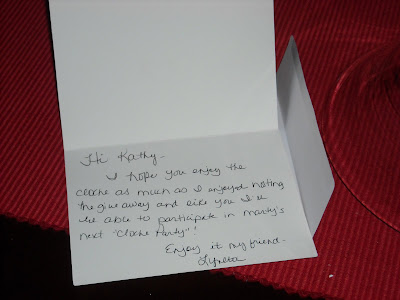 Hi Kathy-
I hope you enjoy the
cloche as much as I enjoyed hosting
the give away and like you I'll
be able to participate in Marty's
next "Cloche Party"!
Enjoy it my friend-